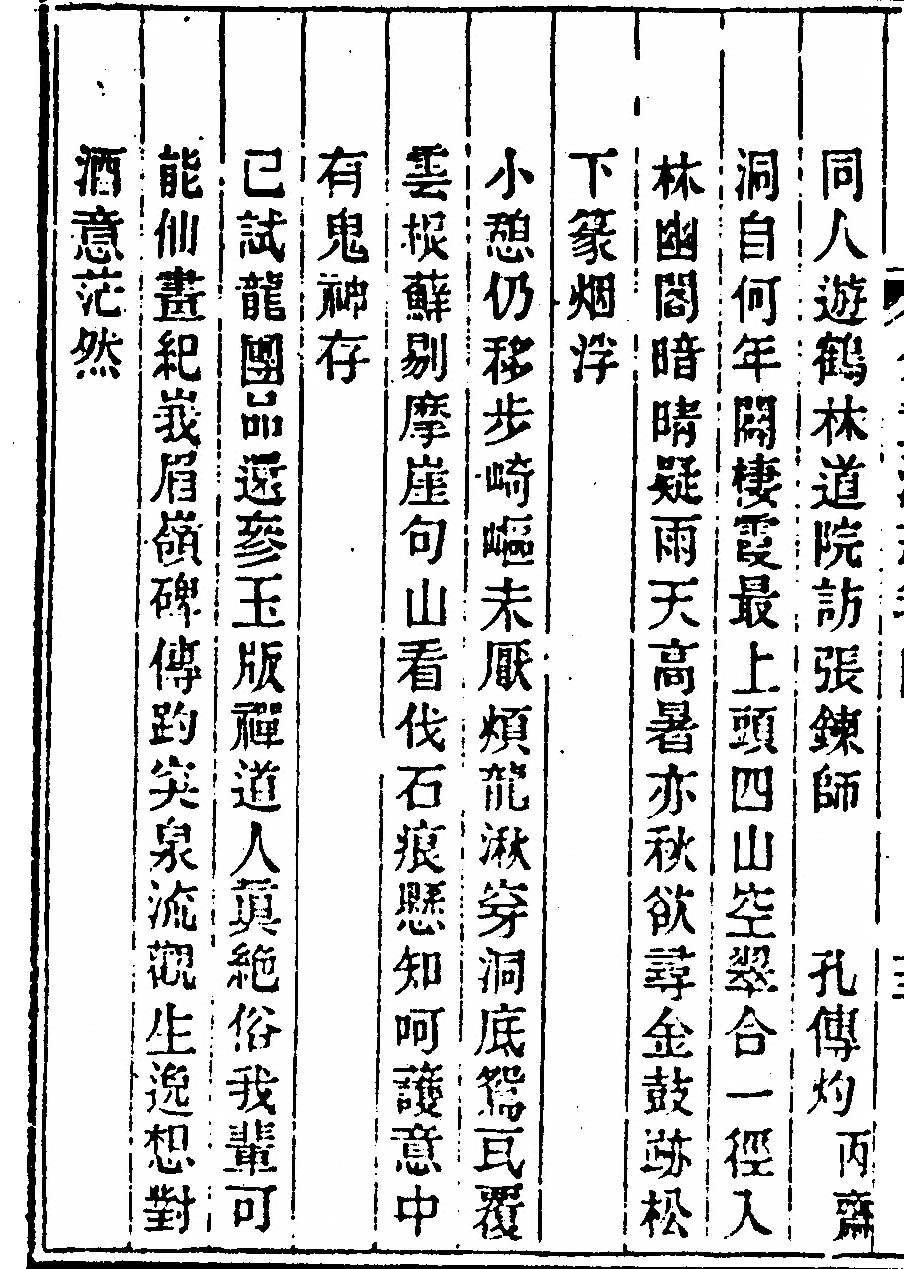 同人遊鶴林道院訪張鍊師　孔傳灼　丙齋
洞自何年闢棲霞最上頭四山空翠合一徑入
林幽閣暗晴疑雨天高暑亦秋欲尋金鼓跡松
下篆烟浮
小憩仍移步崎嶇未厭煩龍湫穿洞底鴛瓦覆
雲根蘚剔摩崖句山看伐石痕懸知呵護意中
有鬼神存
已試龍團品還參玉版禪道人眞絶俗我輩可
能仙畫紀峩眉嶺碑傳趵突泉流觀生逸想對
酒意茫然